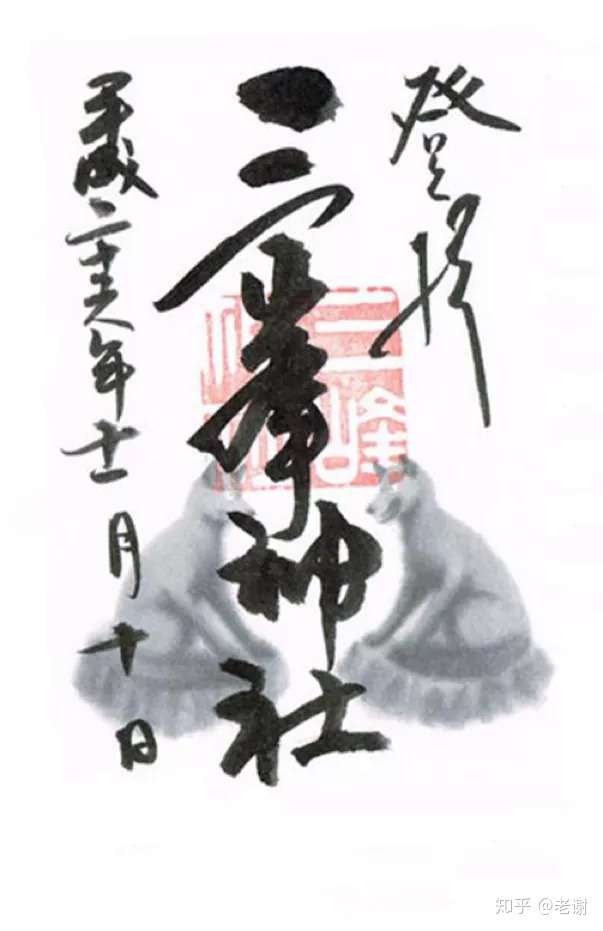 登拝
三峯神社
平成二十六年十一月十日
三峰
知乎 @老谢